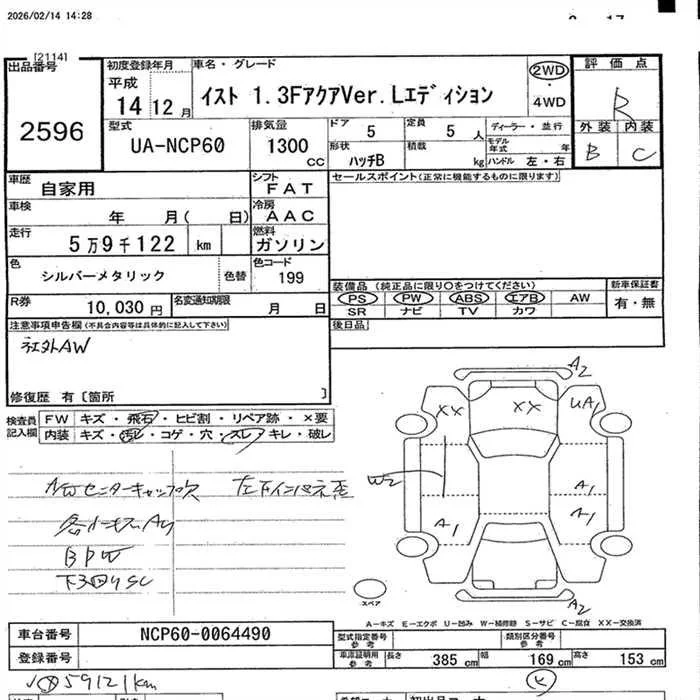 2026/02/14 14:28
[2114]
出品番号
2596
初度登録年月
平成
14 12 月
車名・グレード
イスト 1.3FアクアVer.Lエディション
2WD
・
4WD
評価点
R
型式
UA-NCP60
排気量
1300 cc
ドア 5
定員 5 人
ディーラー・並行
モデル年式 年
形状 ハッチB
積載 kg
ハンドル 左・右
外装 内装
B C
車歴
自家用
シフト
FAT
セールスポイント(正常に機能するものに限ります)
車検
年 月( 日)
冷房
AAC
走行
5万9千122 km
燃料
ガソリン
色
シルバーメタリック
色替
色コード
199
装備品 (純正品に限り○をつけてください)
新車保証書
PS PW ABS エアB AW
有・無
SR ナビ TV カワ
R券
10,030 円
名変通知期限
月 日
後日品
注意事項申告欄(不具合内容等は具体的に記入して下さい)
社外AW
修復歴 有〔箇所 〕
検査員記入欄
FW キズ・飛石・ヒビ割・リペア跡・×要
内装 キズ・汚レ・コゲ・穴・スレ・キレ・破レ
AWセンターキャップ欠
各小キズA4
BPW
A2
XX
XX
UA1
W2
A1
A1
A1
A2
スペア
A-キズ E-エクボ U-凹み W-補修跡 S-サビ C-腐食 XX-交換済
車台番号
NCP60-0064490
型式指定番号 参考
類別区分番号 参考
登録番号
車庫証明用 参考
長さ 385 cm
幅 169 cm
高さ 153 cm
59121km